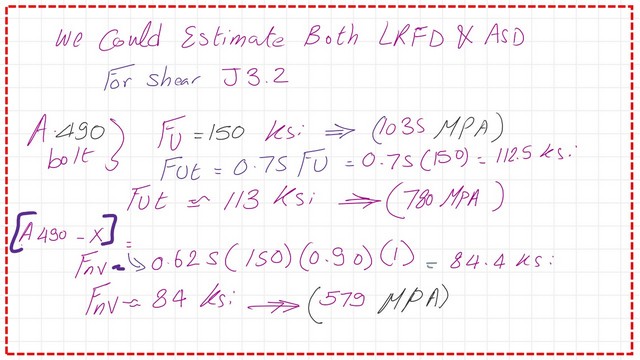 We Could Estimate Both LRFD & ASD
For shear J3.2
A.490 bolt } FU = 150 ksi ⇒ (1035 MPA)
FUt = 0.75 FU = 0.75 (150) = 112.5 ksi
FUt ≈ 113 ksi ⇒ (780 MPA)
[A490 - X] =
Fnv ≈ → 0.625 (150) (0.90) (1) = 84.4 ksi
Fnv ≈ 84 ksi ⇒ (579 MPA)